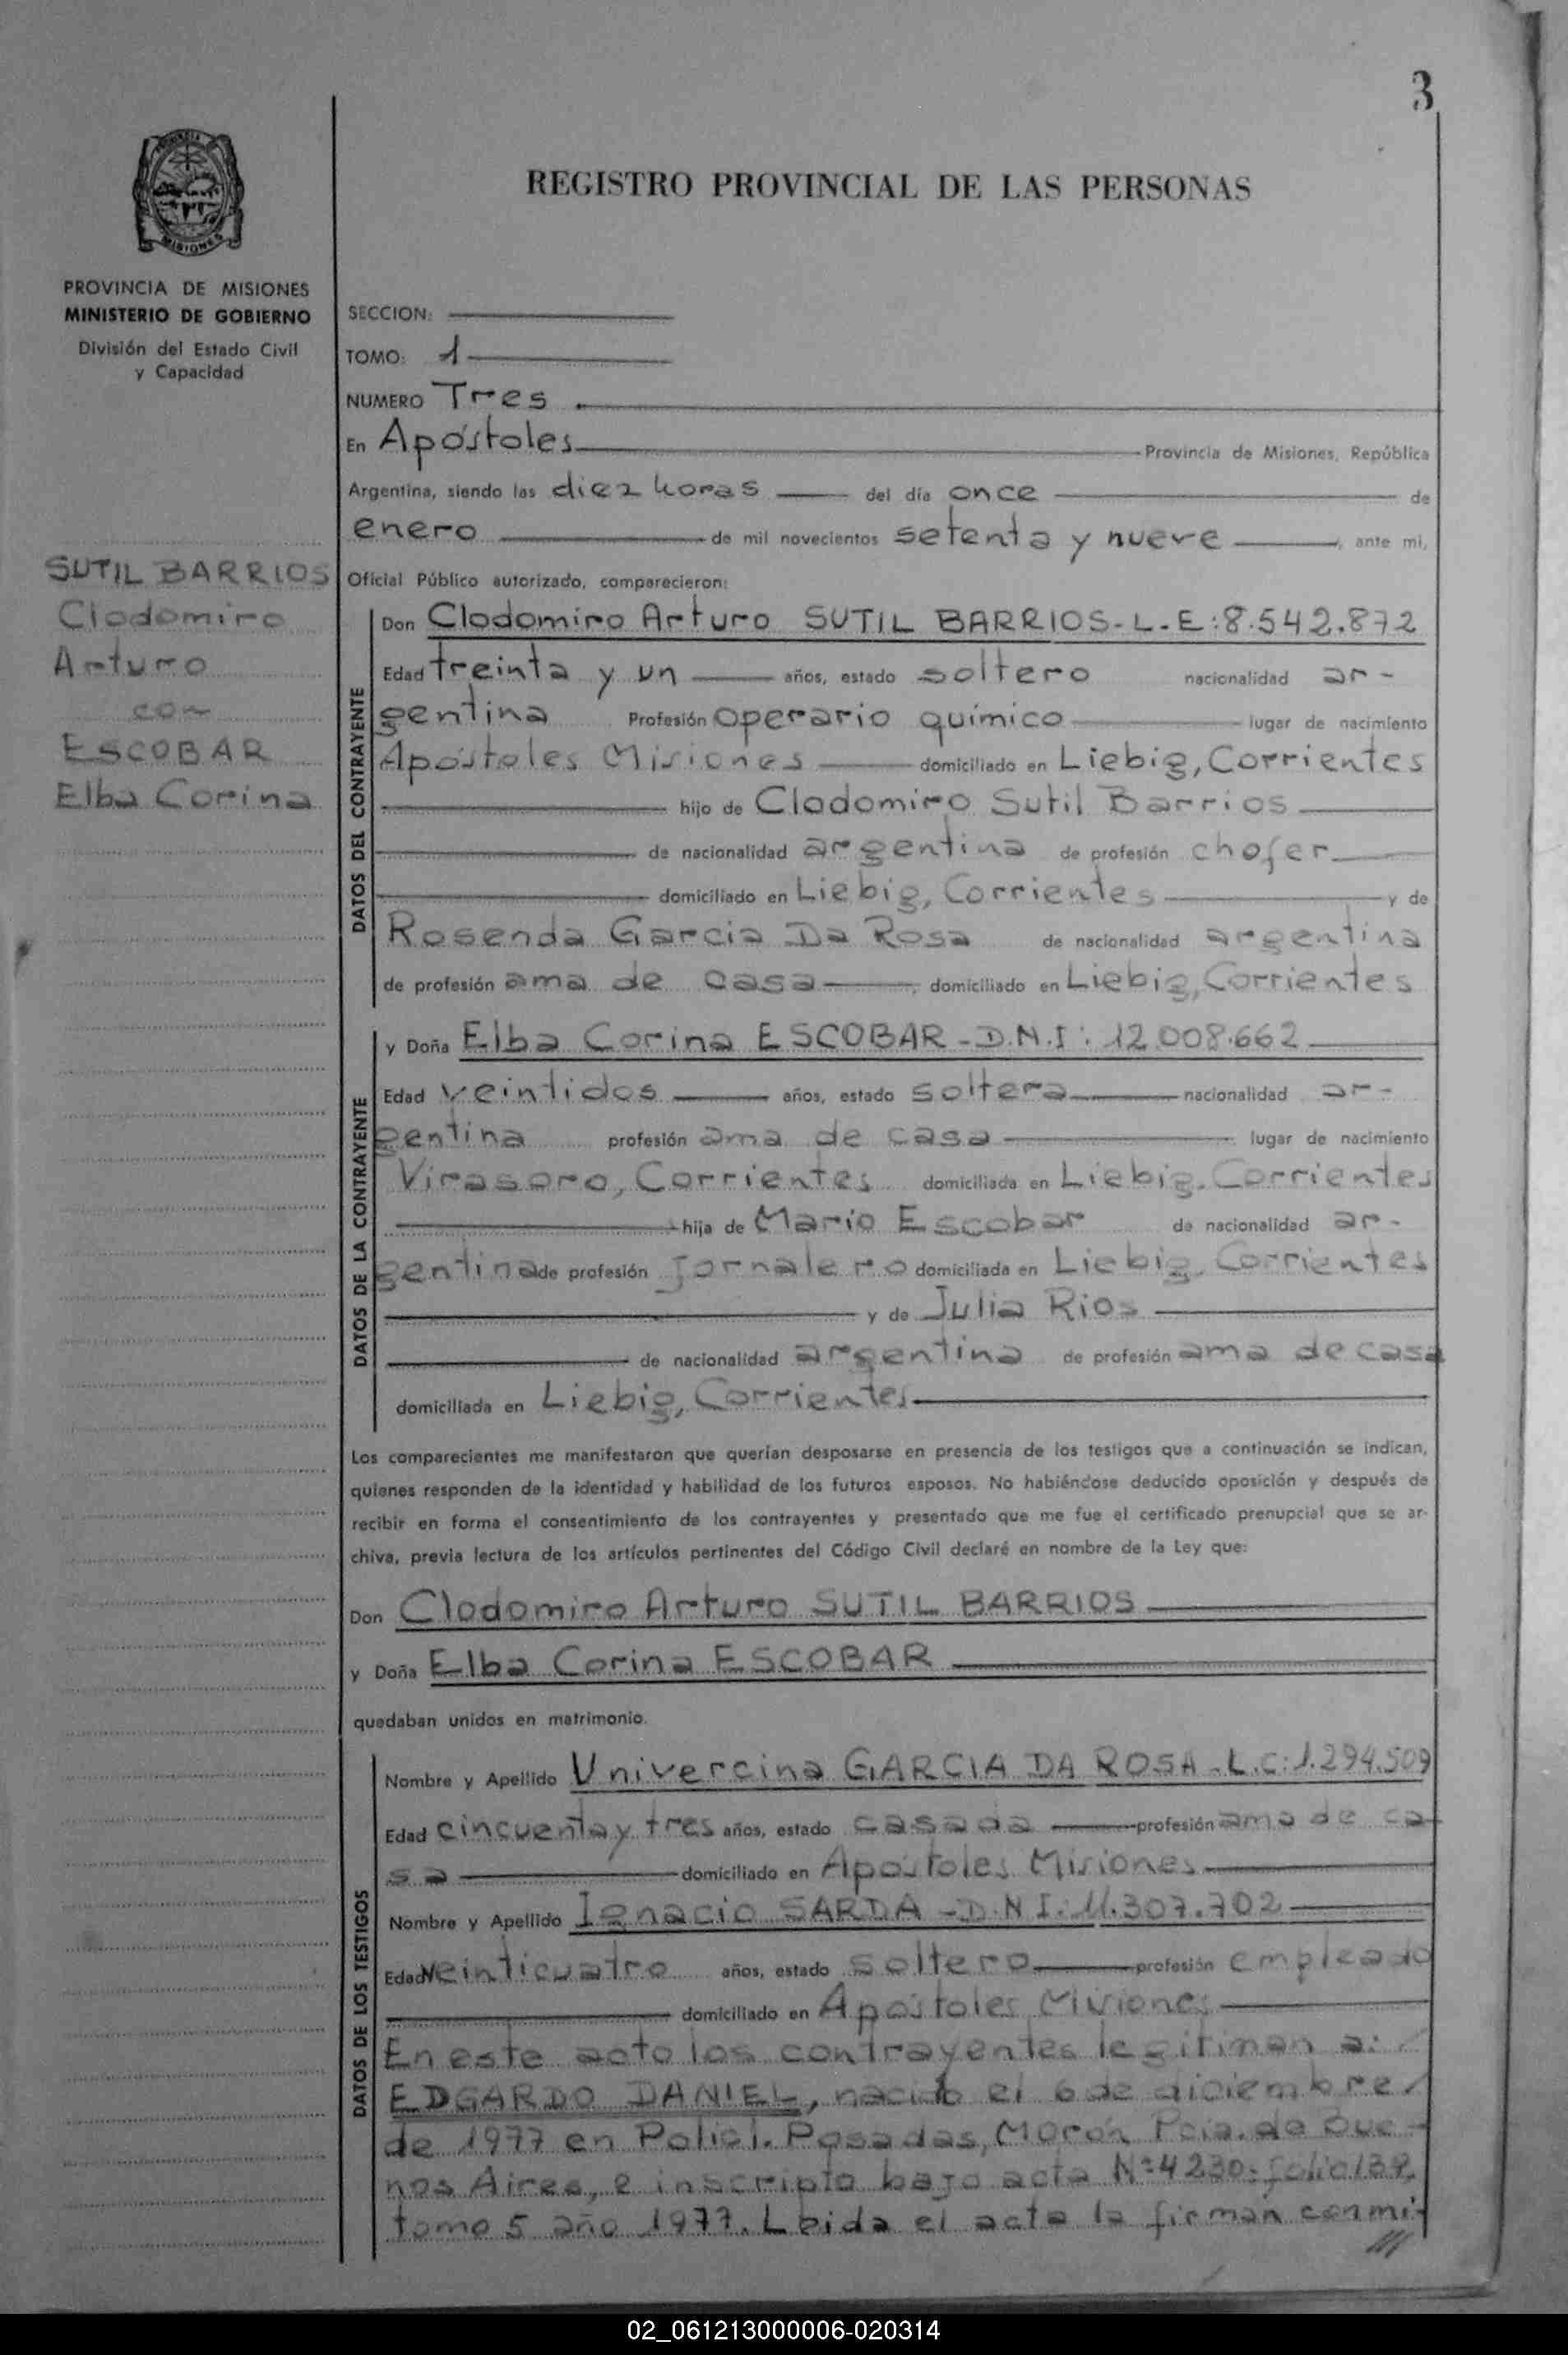 3
REGISTRO PROVINCIAL DE LAS PERSONAS
PROVINCIA DE MISIONES
MINISTERIO DE GOBIERNO
División del Estado Civil
y Capacidad
SUTIL BARRIOS
Clodomiro
Arturo
con
ESCOBAR
Elba Corina
SECCION:
TOMO: 1
NUMERO Tres
En Apóstoles Provincia de Misiones, República
Argentina, siendo las diez horas del día once de
enero de mil novecientos setenta y nueve, ante mi,
Oficial Público autorizado, comparecieron:
DATOS DEL CONTRAYENTE
Don Clodomiro Arturo SUTIL BARRIOS-L.E:8.542.872
Edad treinta y un años, estado soltero nacionalidad ar-
gentina Profesión operario químico lugar de nacimiento
Apóstoles Misiones domiciliado en Liebig, Corrientes
hijo de Clodomiro Sutil Barrios
de nacionalidad argentina de profesión chofer
domiciliado en Liebig, Corrientes y de
Rosenda Garcia Da Rosa de nacionalidad argentina
de profesión ama de casa, domiciliado en Liebig, Corrientes
DATOS DE LA CONTRAYENTE
y Doña Elba Corina ESCOBAR-D.N.I: 12.008.662
Edad veintidos años, estado soltera nacionalidad ar-
gentina profesión ama de casa lugar de nacimiento
Virasoro, Corrientes domiciliada en Liebig, Corrientes
hija de Mario Escobar de nacionalidad ar-
gentina de profesión jornalero domiciliada en Liebig, Corrientes
y de Julia Rios
de nacionalidad argentina de profesión ama de casa
domiciliada en Liebig, Corrientes
Los comparecientes me manifestaron que querían desposarse en presencia de los testigos que a continuación se indican,
quienes responden de la identidad y habilidad de los futuros esposos. No habiéndose deducido oposición y después de
recibir en forma el consentimiento de los contrayentes y presentado que me fue el certificado prenupcial que se ar-
chiva, previa lectura de los artículos pertinentes del Código Civil declaré en nombre de la Ley que:
Don Clodomiro Arturo SUTIL BARRIOS
y Doña Elba Corina ESCOBAR
quedaban unidos en matrimonio.
DATOS DE LOS TESTIGOS
Nombre y Apellido Univercina GARCIA DA ROSA-L.C:1.294.509
Edad cincuenta y tres años, estado casada profesión ama de ca-
sa domiciliado en Apóstoles Misiones
Nombre y Apellido Ignacio SARDA-D.N.I:11.307.702
Edad veinticuatro años, estado soltero profesión empleado
domiciliado en Apóstoles Misiones
En este acto los contrayentes legitiman a:
EDGARDO DANIEL, nacido el 6 de diciembre
de 1977 en Policl. Posadas, Morón Pcia. de Bue-
nos Aires, e inscripto bajo acta Nº4230-folio138,
tomo 5 año 1977. Leida el acta la firman conmi-
///
PROVINCIA
MISIONES
02_061213000006-020314